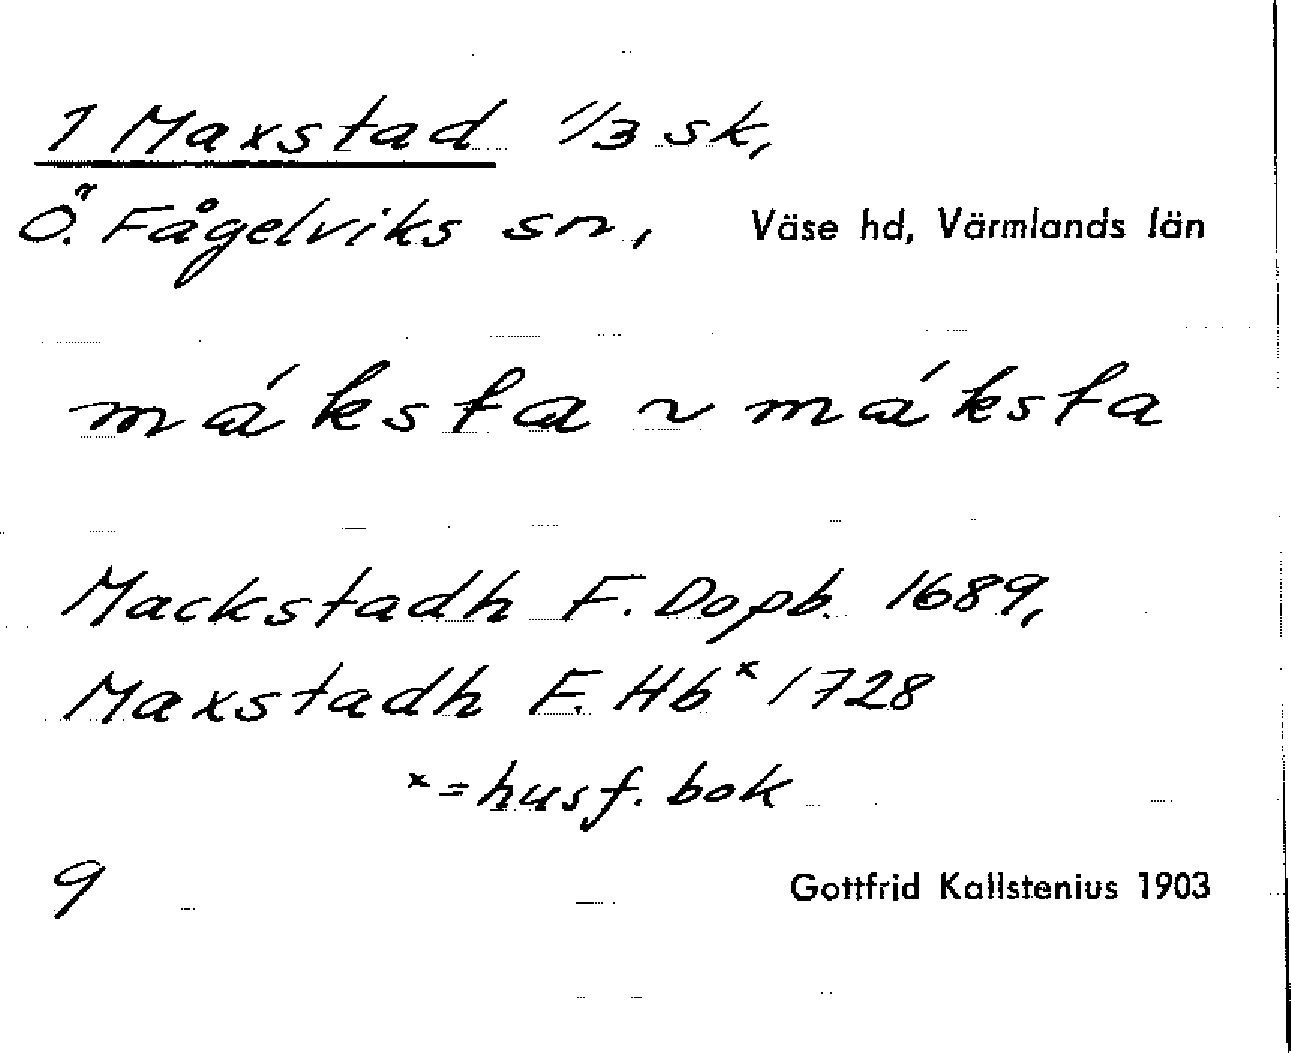 1 Maxstad 1/3 sk,
Ö. Fågelviks sn, Väse hd, Värmlands län
máksta ~ máksta
Mackstadh F. Dopb. 1689,
Maxstadh F. Hb x 1728
x = husf. bok
9 Gottfrid Kallstenius 1903